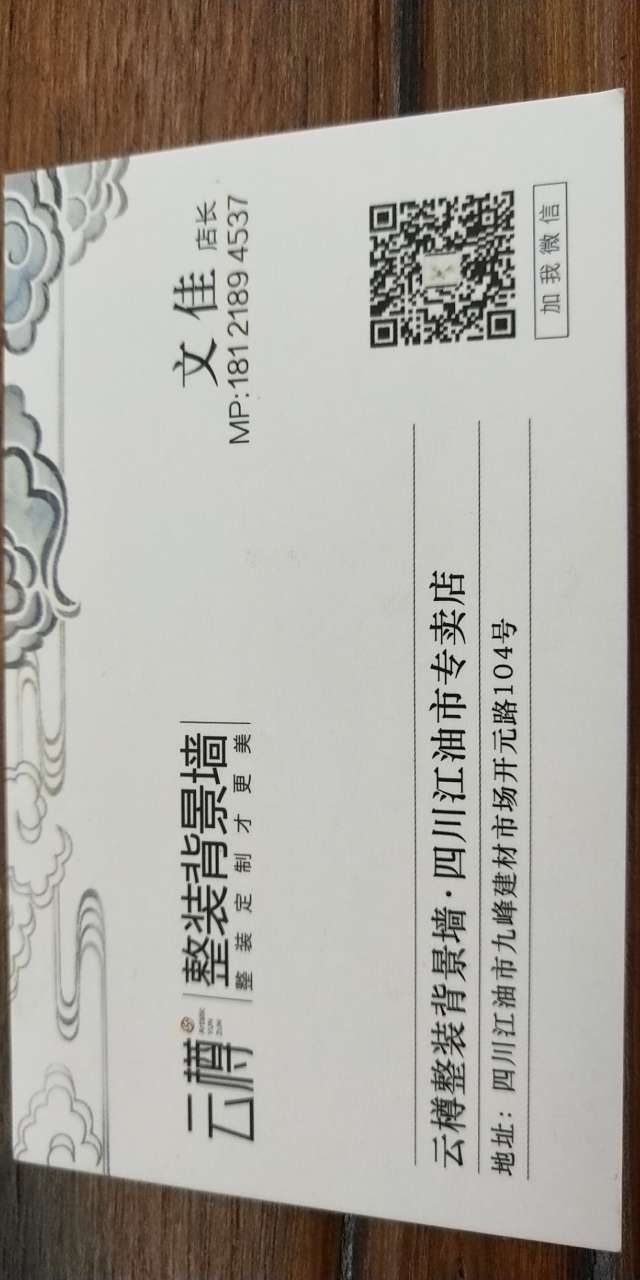 云樽
Artistic
YUN
ZUN
整装背景墙
整装定制才更美
文佳 店长
MP:181 2189 4537
云樽整装背景墙·四川江油市专卖店
地址：四川江油市九峰建材市场开元路104号
加我微信